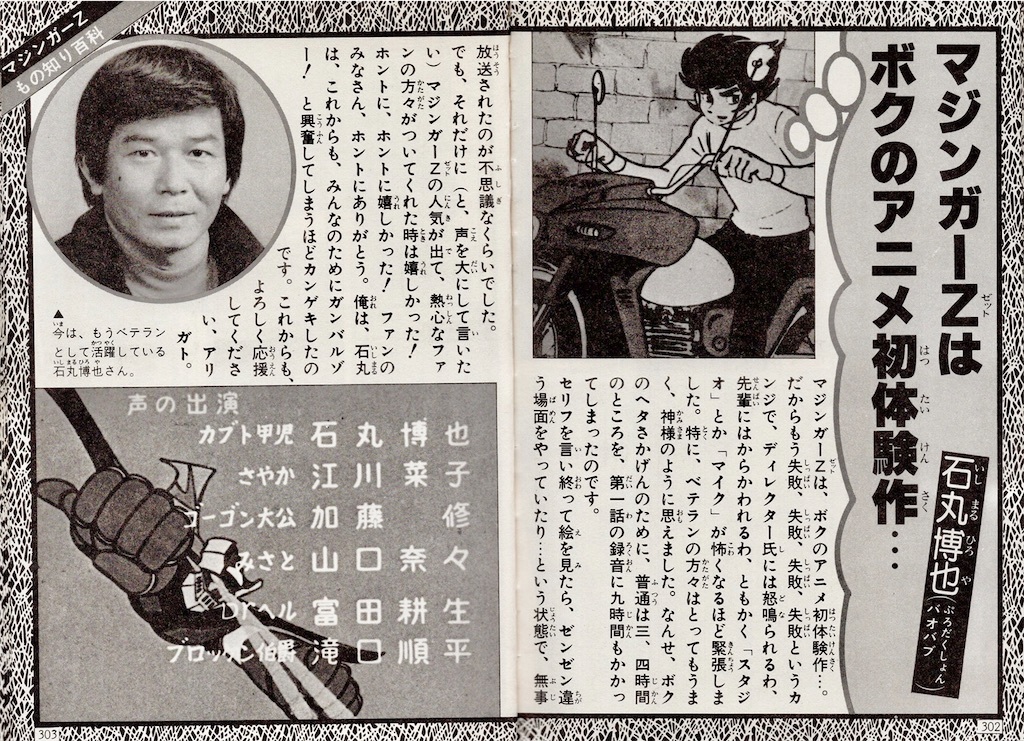 マジンガーZは
ボクのアニメ初体験作…
石丸博也(ぷろだくしょんバオバブ)
マジンガーZは、ボクのアニメ初体験作…。
だからもう失敗、失敗、失敗、失敗というカ
ンジで、ディレクター氏には怒鳴られるわ、
先輩にはからかわれるわ、ともかく、「スタジ
オ」とか「マイク」が怖くなるほど緊張しま
した。特に、ベテランの方々はとってもうま
く、神様のように思えました。なんせ、ボク
のヘタさかげんのために、普通は三、四時間
のところを、第一話の録音に九時間もかかっ
てしまったのです。
セリフを言い終って絵を見たら、ゼンゼン違
う場面をやっていたり…という状態で、無事
302
マジンガーZ
もの知り百科
放送されたのが不思議なくらいでした。
でも、それだけに(と、声を大にして言いた
い)マジンガーZの人気が出て、熱心なファ
ンの方々がついてくれた時は嬉しかった!
ホントに、ホントに嬉しかった! ファンの
みなさん、ホントにありがとう。俺は、石丸
は、これからも、みんなのためにガンバルゾ
ー! と興奮してしまうほどカンゲキしたの
です。これからも、
よろしく応援
してくださ
い、アリ
ガト。
▲
今は、もうベテラン
として活躍している
石丸博也さん。
声の出演
カブト甲児 石丸博也
さやか 江川菜子
ゴーゴン大公 加藤 修
みさと 山口奈々
Drヘル 富田耕生
ブロッケン伯爵 滝口順平
303